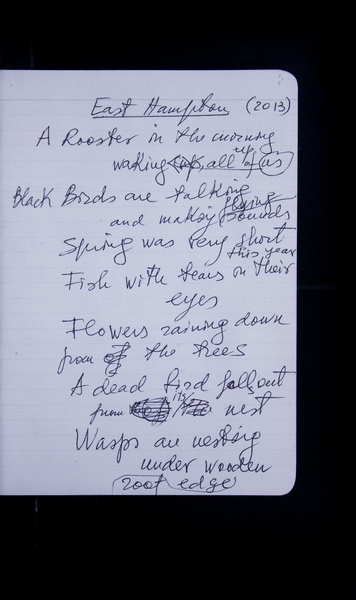 East Hampton (2013)
A Rooster in the morning
waking up all of us
Black Birds are talking
and making flying sounds
Spring was very short
this year
Fish with tears on their
eyes
Flowers raining down
from the trees
A dead bird falls out
from its nest
Wasps are nesting
under wooden
roof edge